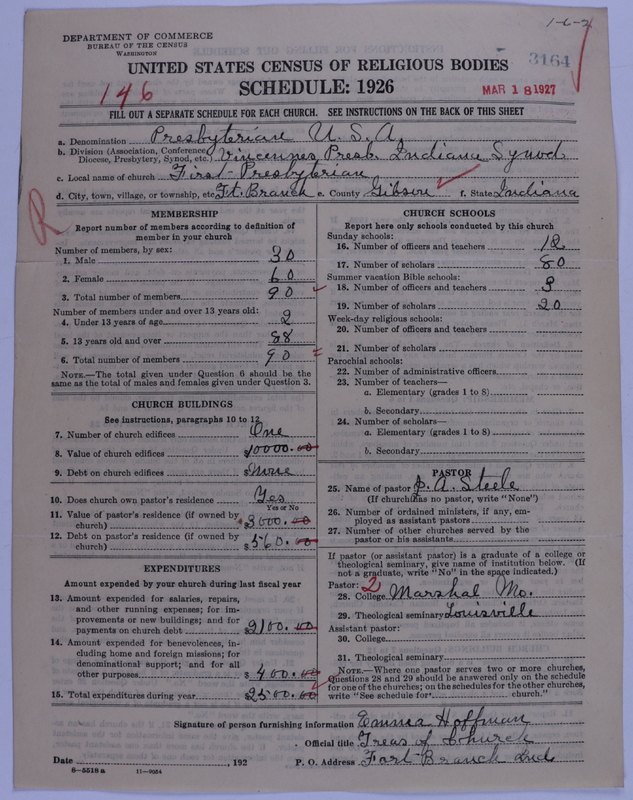 1-6-2
DEPARTMENT OF COMMERCE
BUREAU OF THE CENSUS
WASHINGTON
3164
UNITED STATES CENSUS OF RELIGIOUS BODIES
146
SCHEDULE: 1926
MAR 18 1927
FILL OUT A SEPARATE SCHEDULE FOR EACH CHURCH. SEE INSTRUCTIONS ON THE BACK OF THIS SHEET
a. Denomination Presbyterian U.S.A.
b. Division (Association, Conference, Diocese, Presbytery, Synod, etc.) Vincennes Presb. Indiana Synod
c. Local name of church First Presbyterian
d. City, town, village, or township, etc. Ft. Branch e. County Gibson f. State Indiana
R
MEMBERSHIP
Report number of members according to definition of
member in your church
Number of members, by sex:
1. Male 30
2. Female 60
3. Total number of members 90
Number of members under and over 13 years old:
4. Under 13 years of age 2
5. 13 years old and over 88
6. Total number of members 90
NOTE.—The total given under Question 6 should be the
same as the total of males and females given under Question 3.
CHURCH BUILDINGS
See instructions, paragraphs 10 to 12
7. Number of church edifices One
8. Value of church edifices $10000.00
9. Debt on church edifices $None
10. Does church own pastor's residence Yes
Yes or No
11. Value of pastor's residence (if owned by
church) $3000.00
12. Debt on pastor's residence (if owned by
church) $560.00
EXPENDITURES
Amount expended by your church during last fiscal year
13. Amount expended for salaries, repairs,
and other running expenses; for im-
provements or new buildings; and for
payments on church debt $2100.00
14. Amount expended for benevolences, in-
cluding home and foreign missions; for
denominational support; and for all
other purposes $400.00
15. Total expenditures during year $2500.00
CHURCH SCHOOLS
Report here only schools conducted by this church
Sunday schools:
16. Number of officers and teachers 12
17. Number of scholars 80
Summer vacation Bible schools:
18. Number of officers and teachers 3
19. Number of scholars 20
Week-day religious schools:
20. Number of officers and teachers
21. Number of scholars
Parochial schools:
22. Number of administrative officers
23. Number of teachers—
a. Elementary (grades 1 to 8)
b. Secondary
24. Number of scholars—
a. Elementary (grades 1 to 8)
b. Secondary
PASTOR
25. Name of pastor J. A. Steele
(If church has no pastor, write "None")
26. Number of ordained ministers, if any, em-
ployed as assistant pastors
27. Number of other churches served by the
pastor or his assistants
If pastor (or assistant pastor) is a graduate of a college or
theological seminary, give name of institution below. (If
not a graduate, write "No" in the space indicated.)
Pastor: 2
28. College Marshal Mo.
29. Theological seminary Louisville
Assistant pastor:
30. College
31. Theological seminary
NOTE.—Where one pastor serves two or more churches,
Questions 28 and 29 should be answered only on the schedule
for one of the churches; on the schedules for the other churches,
write "See schedule for church."
Signature of person furnishing information Emma Hoffman
Official title Treas of Church
Date , 192 P. O. Address Fort Branch Ind
8-5518 a 11-9054